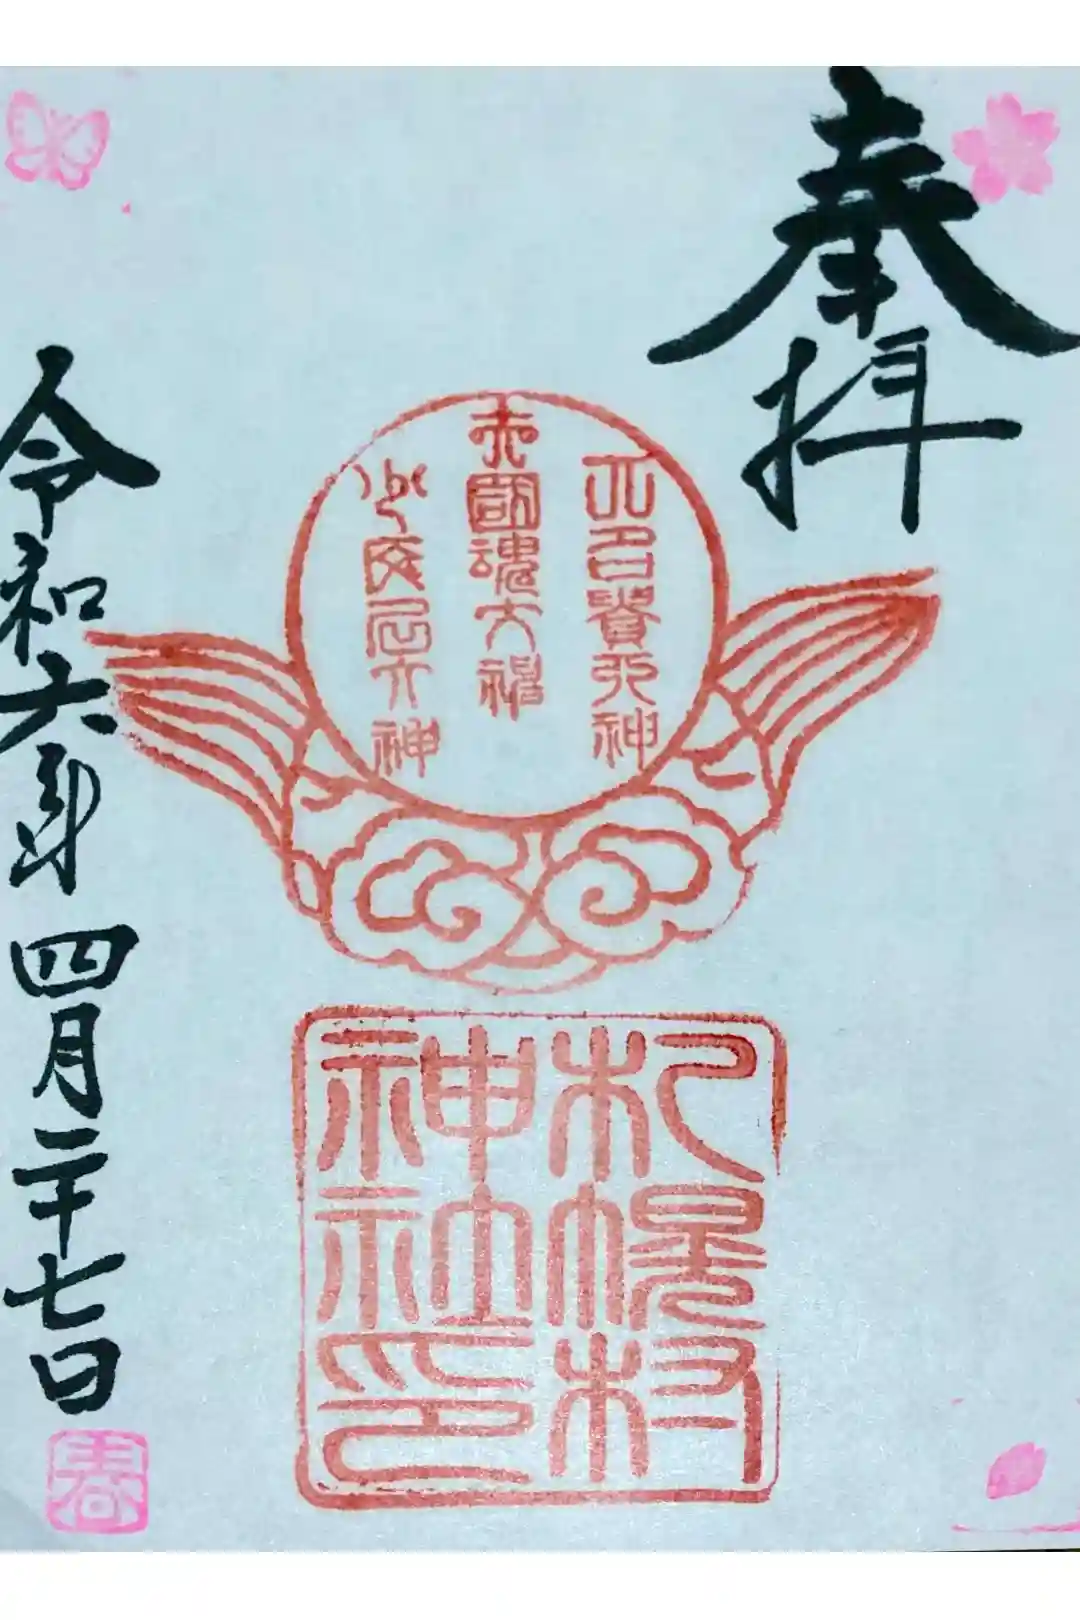 奉拝
大國魂大神
少彦名大神
札幌村
神社印
令和六年四月二十七日
春